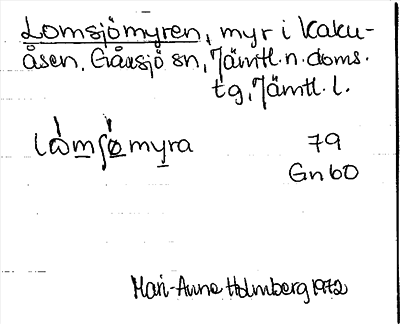 Lomsjömyren, myr i Kaku-
åsen, Gåxsjö sn, Jämtl. n. doms.
tg, Jämtl. l.
lòmʃø̀myra 79
Gn 60
Mari-Anne Holmberg 1972